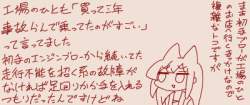 工場のひとも「買って三年
事故らんで乗ってたのがすごい」
って言ってました
初手のエンジンブローから続いてた
走行不能を招く系の故障が
なければ足回りから手を入れる
つもりだったんですけどね
まあ初手ブローが工場の
お店へ行くきっかけなので
複雑なトコですが